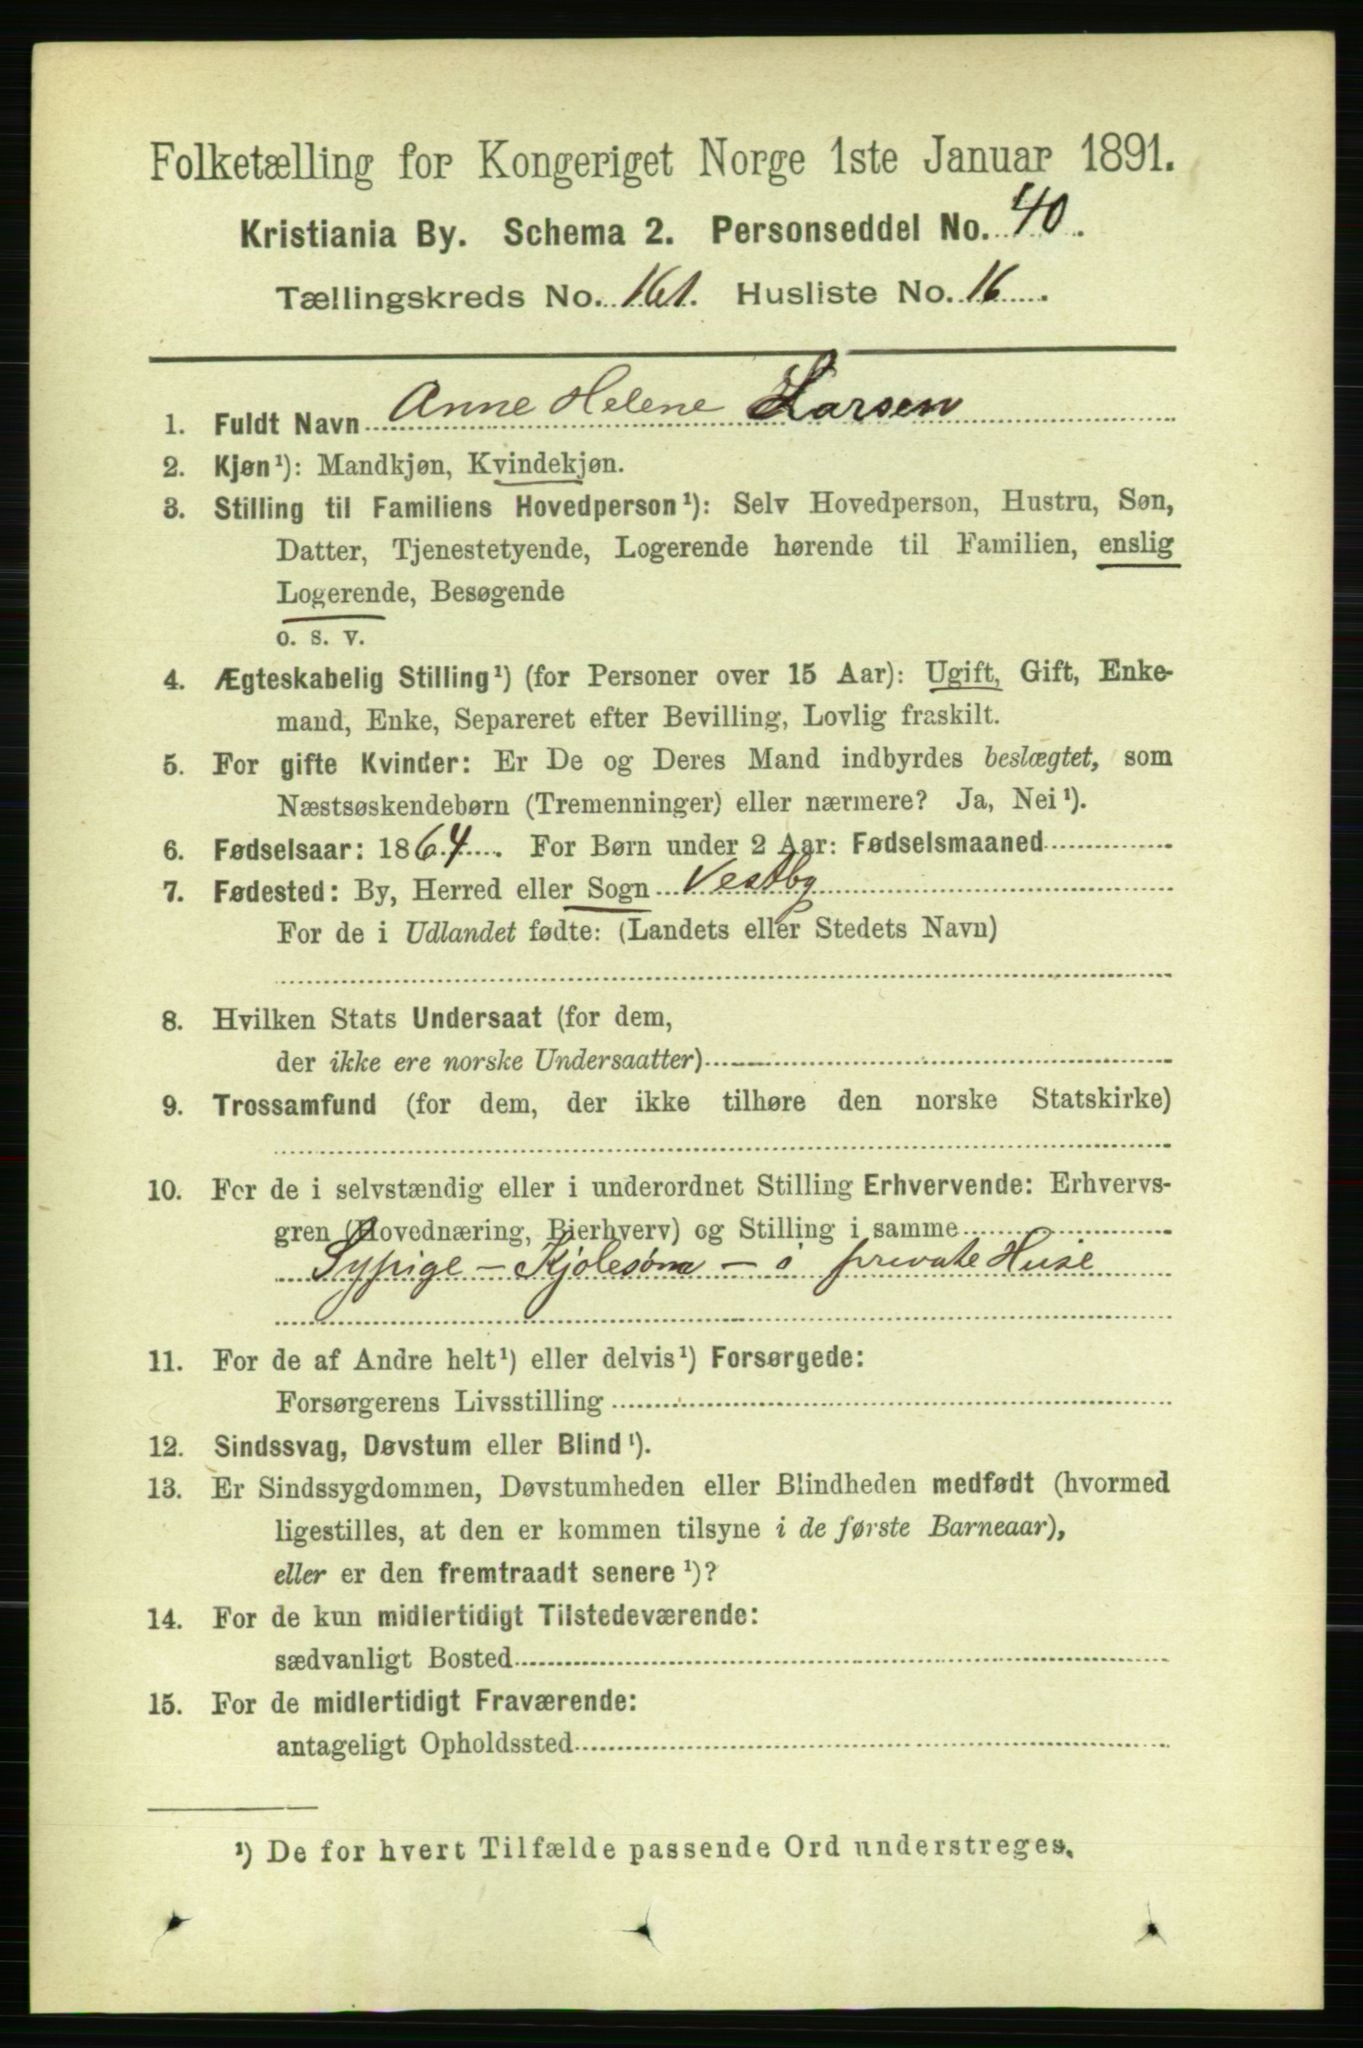 Folketælling for Kongeriget Norge 1ste Januar 1891.
Kristiania By. Schema 2. Personseddel No. 40.
Tællingskreds No. 161. Husliste No. 16.
1. Fuldt Navn Anne Helene Larsen
2. Kjøn¹): Mandkjøn, Kvindekjøn.
3. Stilling til Familiens Hovedperson¹): Selv Hovedperson, Hustru, Søn,
Datter, Tjenestetyende, Logerende hørende til Familien, enslig
Logerende, Besøgende
o. s. v.
4. Ægteskabelig Stilling¹) (for Personer over 15 Aar): Ugift, Gift, Enke-
mand, Enke, Separeret efter Bevilling, Lovlig fraskilt.
5. For gifte Kvinder: Er De og Deres Mand indbyrdes beslægtet, som
Næstsøskendebørn (Tremenninger) eller nærmere? Ja, Nei¹).
6. Fødselsaar: 1864. For Børn under 2 Aar: Fødselsmaaned
7. Fødested: By, Herred eller Sogn Vestby
For de i Udlandet fødte: (Landets eller Stedets Navn)
8. Hvilken Stats Undersaat (for dem,
der ikke ere norske Undersaatter)
9. Trossamfund (for dem, der ikke tilhøre den norske Statskirke)
10. For de i selvstændig eller i underordnet Stilling Erhvervende: Erhvervs-
gren (Hovednæring, Bierhverv) og Stilling i samme
Sypige - Kjolesøm - i private Huse
11. For de af Andre helt¹) eller delvis¹) Forsørgede:
Forsørgerens Livsstilling
12. Sindssvag, Døvstum eller Blind¹).
13. Er Sindssygdommen, Døvstumheden eller Blindheden medfødt (hvormed
ligestilles, at den er kommen tilsyne i de første Barneaar),
eller er den fremtraadt senere¹)?
14. For de kun midlertidigt Tilstedeværende:
sædvanligt Bosted
15. For de midlertidigt Fraværende:
antageligt Opholdssted
¹) De for hvert Tilfælde passende Ord understreges.